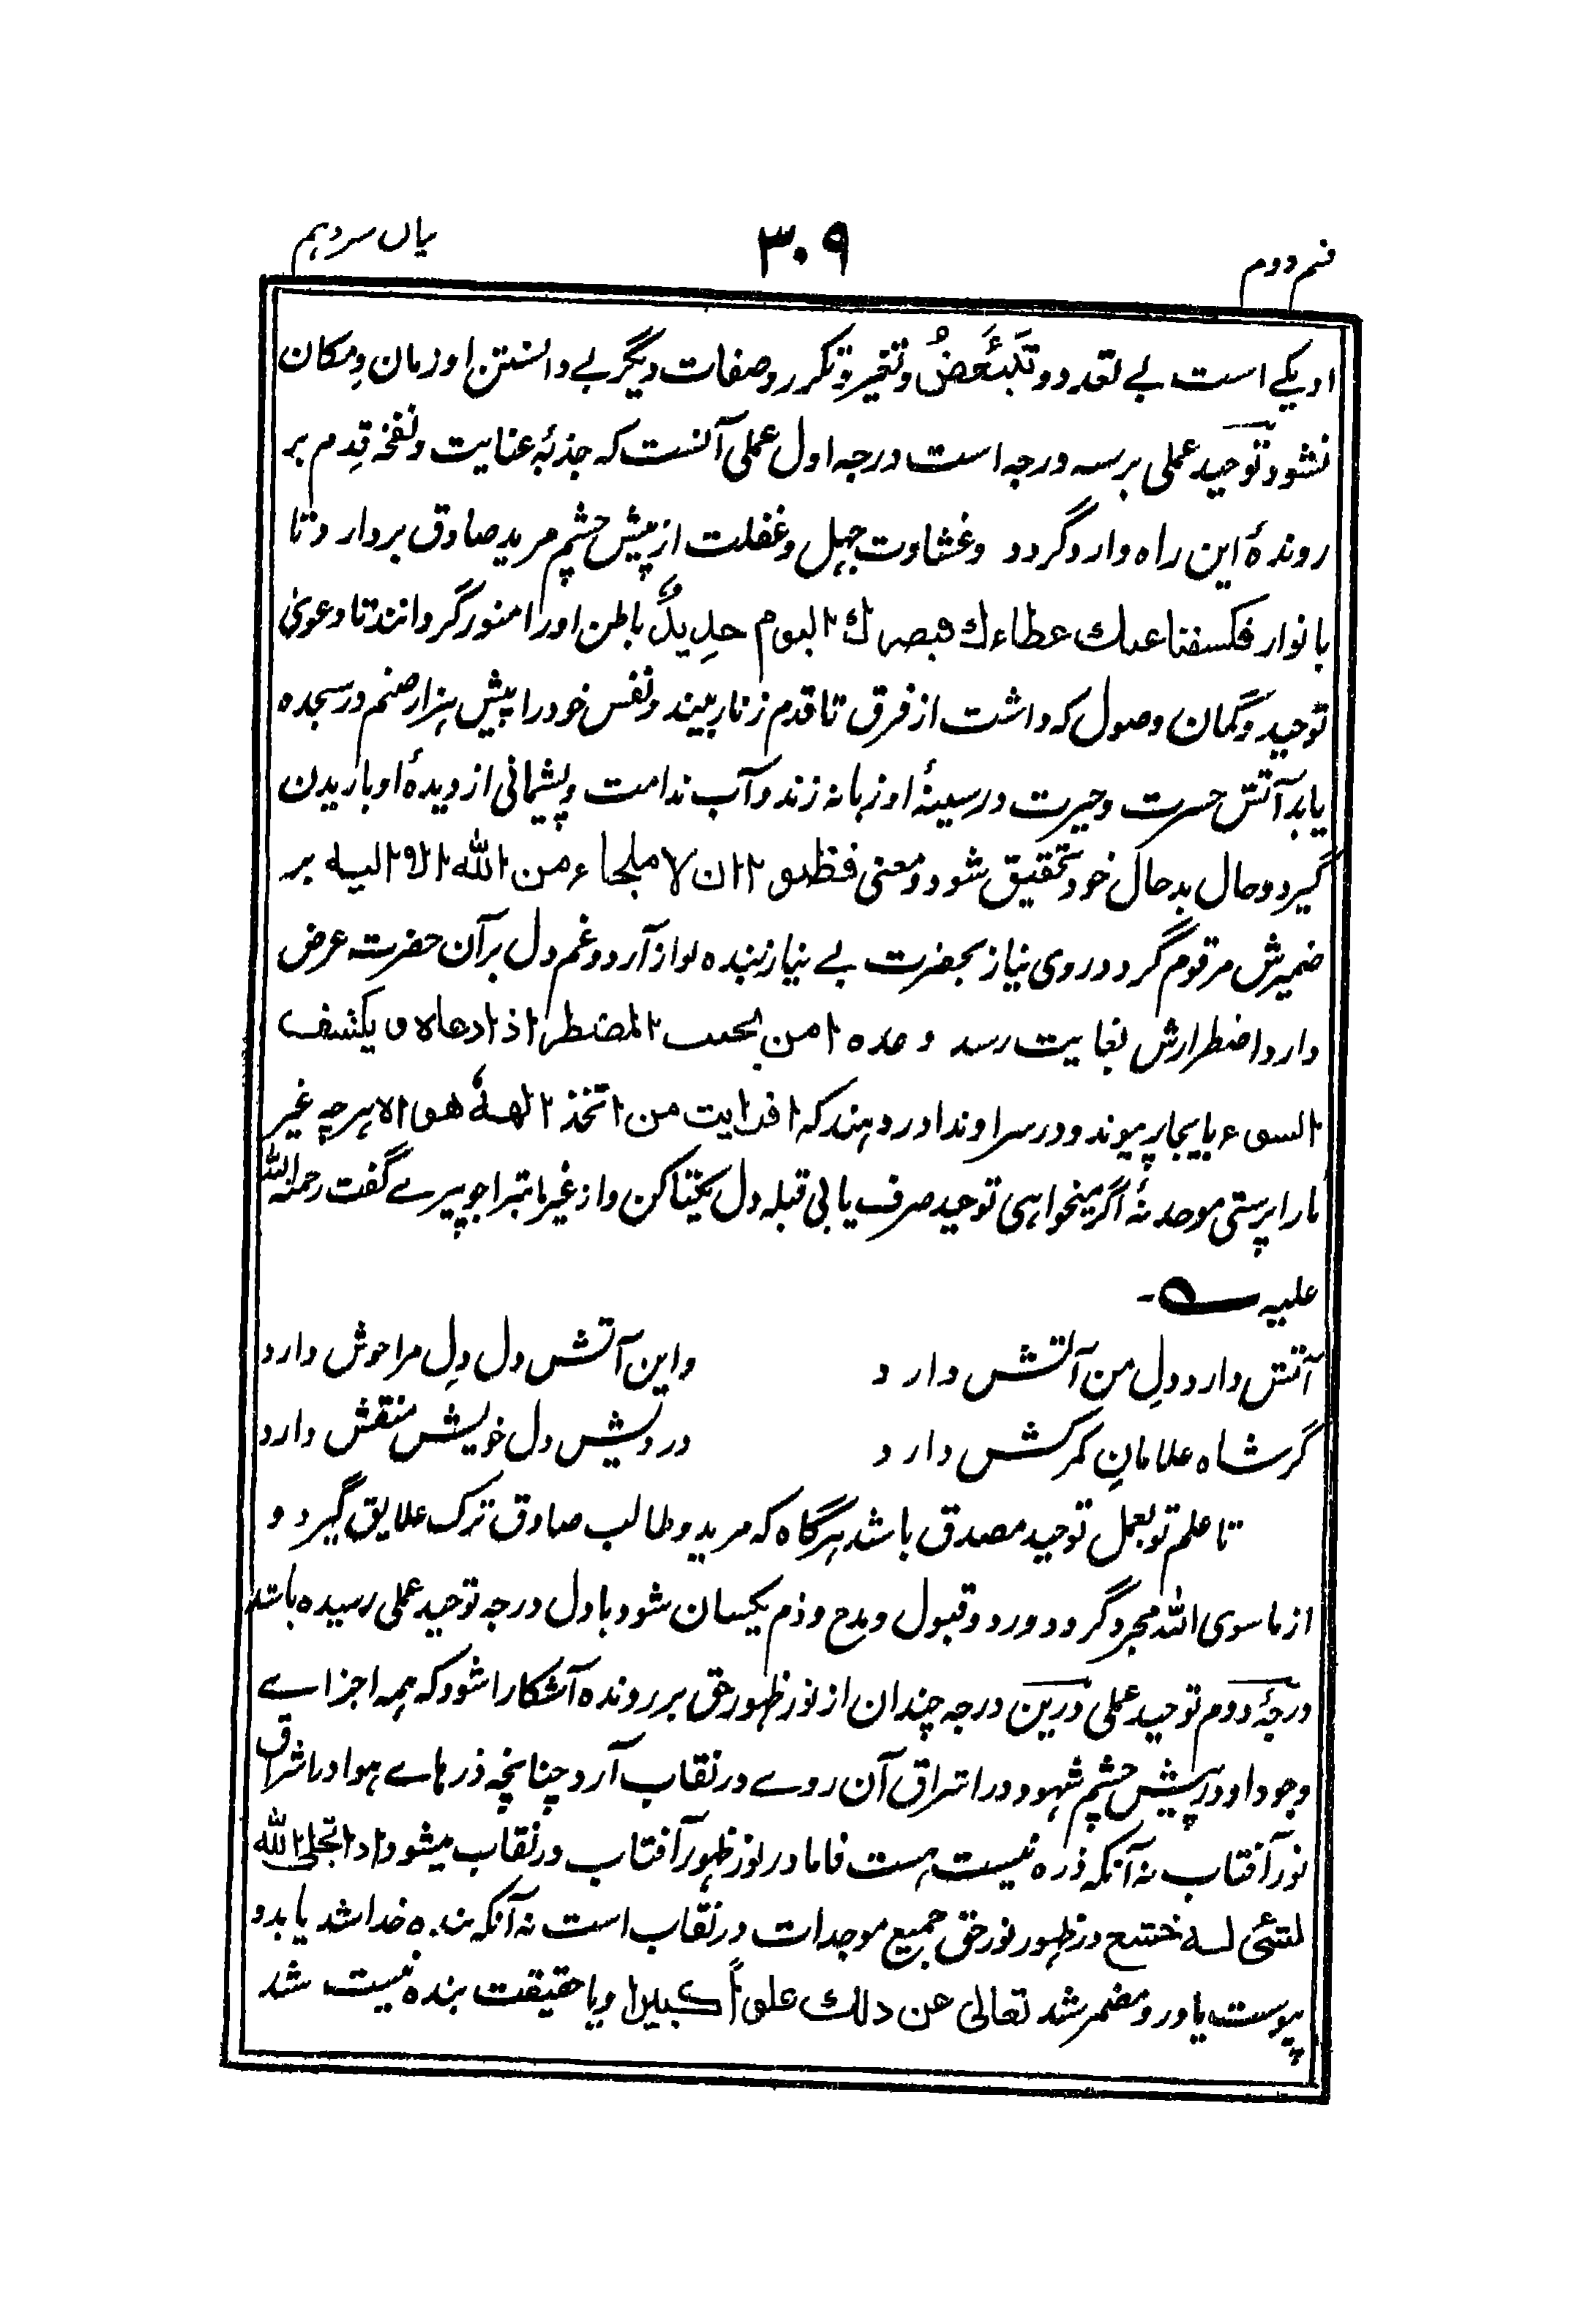 قسم دوم
۳۰۹
بیان سیزدهم
او یکے است بے تعدد و تَبَعُّضُ و تغیر و تکرر و صفات دیگر بے دانستن او زمان و مکان
نشود توحید عملی بر سه درجه است درجه اول عملی آنست که جذبۂ عنایت و نفخۂ قِدم بر
روندهٔ این راه وارد گردد و غشاوت جهل و غفلت از پیش چشم مرید صادق بردارد تا
بانوار فکشفنا عنك غطاءك فبصرك الیوم حدِیدٌ باطن او را منور گردانند تا دعویٰ
توحید و گمان وصول که داشت از فرق تا قدم زنار بیند و نفس خود را پیش هزار صنم در سجده
یابد آتش حسرت و حیرت در سینهٔ او زبانه زند و آب ندامت و پشیمانی از دیدهٔ او باریدن
گیرد و حال بد حال خود تحقیق شود و معنی فظنوا ان لا ملجاء من الله الا الیه بر
ضمیرش مرقوم گردد و روی نیاز بحضرت بے نیاز بنده نواز آرد و غم دل بر آن حضرت عرض
دارد اضطرارش بغایت رسد وعده امن یجیب المضطر اذا دعاه و یکشف
السوء بایجاب پیوندد و در سر او ندا در دهند که افرایت من اتخذ الههٗ هواه هرچه غیر
ما را پرستی موحد نۂ اگر میخواهی توحید صرف یابی قبله دل یکتا کن و از غیر ما تبرا جو پیرے گفت رحمة الله
علیه ؎ -
آتش دارد دلِ من آتش دارد
واین آتش دل دِل مرا خوش دارد
گر شاه غلامانِ کمرکش دارد
درویش دل خویش منقش دارد
تا علم تو بعمل توحید مصدق باشد هرگاه که مرید و طالب صادق ترک علایق گیرد و
از ما سوی الله مجرد گردد و رد و قبول و مدح و ذم یکسان شود باول درجه توحید عملی رسیده باشد
درجۂ دوم توحید عملی درین درجه چندان از نور ظهور حق بر رونده آشکارا شود که همه اجزاے
وجود او در پیش چشم شهود در اشراق آن روے در نقاب آرد چنانچه ذرهاے هوا در اشراق
نور آفتاب نه آنکه ذره نیست هست فاما در نور ظهور آفتاب در نقاب میشود اذا تجلی الله
لشیٔ له خشع در ظهور نور حق جمیع موجدات در نقاب است نه آنکه بنده خدا شد یا بدو
پیوست یا در و مضمر شد تعالی عن ذلك علواً كبیرا و یا حقیقت بنده نیست شد